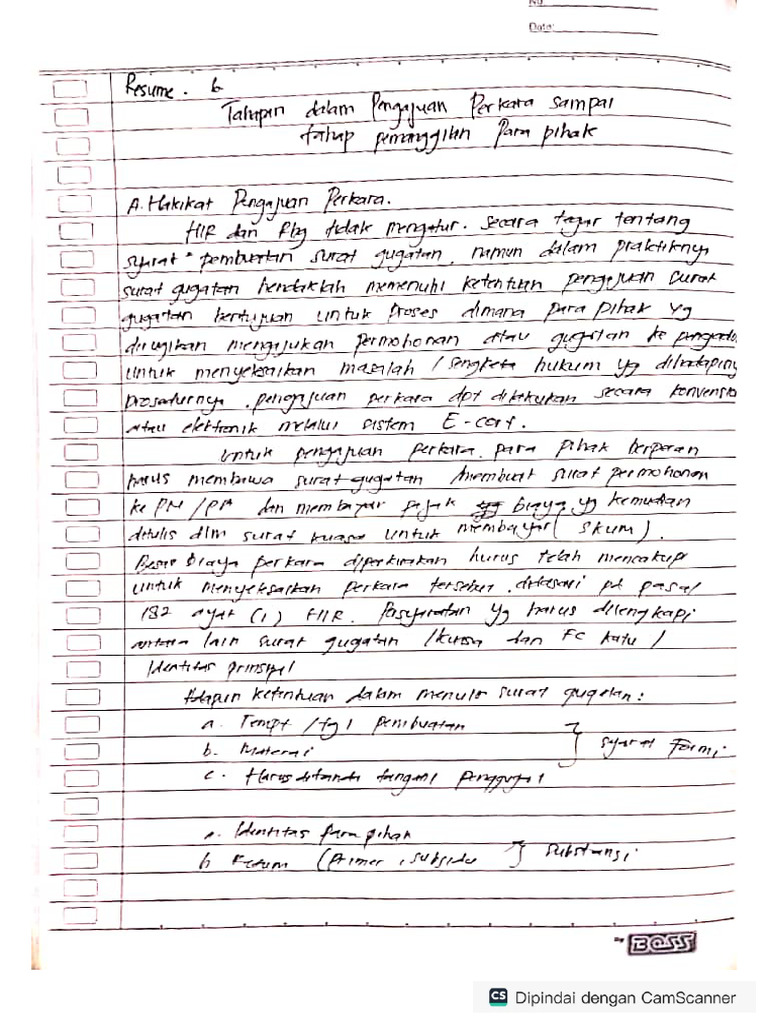 No
Date:
Resume. 6
Tahapan dalam Pengajuan Perkara sampai
tahap pemanggilan Para pihak
A. Hakikat Pengajuan Perkara.
HIR dan Rbg tidak mengatur. secara tegas tentang
syarat" pembuatan surat gugatan, namun dalam praktiknya
surat gugatan hendaklah memenuhi ketentuan pengajuan surat
gugatan bertujuan untuk proses dimana para pihak yg
dirugikan mengajukan permohonan atau gugatan ke pengadi
untuk menyelesaikan masalah / sengketa hukum yg dihadapiny
prosedurnya. pengajuan perkara dpt dilakukan secara konvensio
atau elektronik melalui sistem E-cort.
Untuk pengajuan perkara para pihak berperan
harus membawa surat gugatan / membuat surat permohonan
ke PN / PA dan membayar pajak biaya yg kemudian
ditulis dlm surat kuasa untuk membayar (SKUM).
Besar biaya perkara diperkirakan harus telah mencakup
untuk menyelesaikan perkara tersebut, didasari pd pasal
182 ayat (1) HIR. Persyaratan yg harus dilengkapi
antara lain surat gugatan / kuasa dan FC kartu /
Identitas prinsipal
Adapun ketentuan dalam menulis surat gugatan:
a. Tempt / tgl pembuatan
b. Materai } syarat Formi
c. Harus ditanda tangani penggugat
a. Identitas para pihak
b (primer, subsider } substansi
By BOSS
CS Dipindai dengan CamScanner